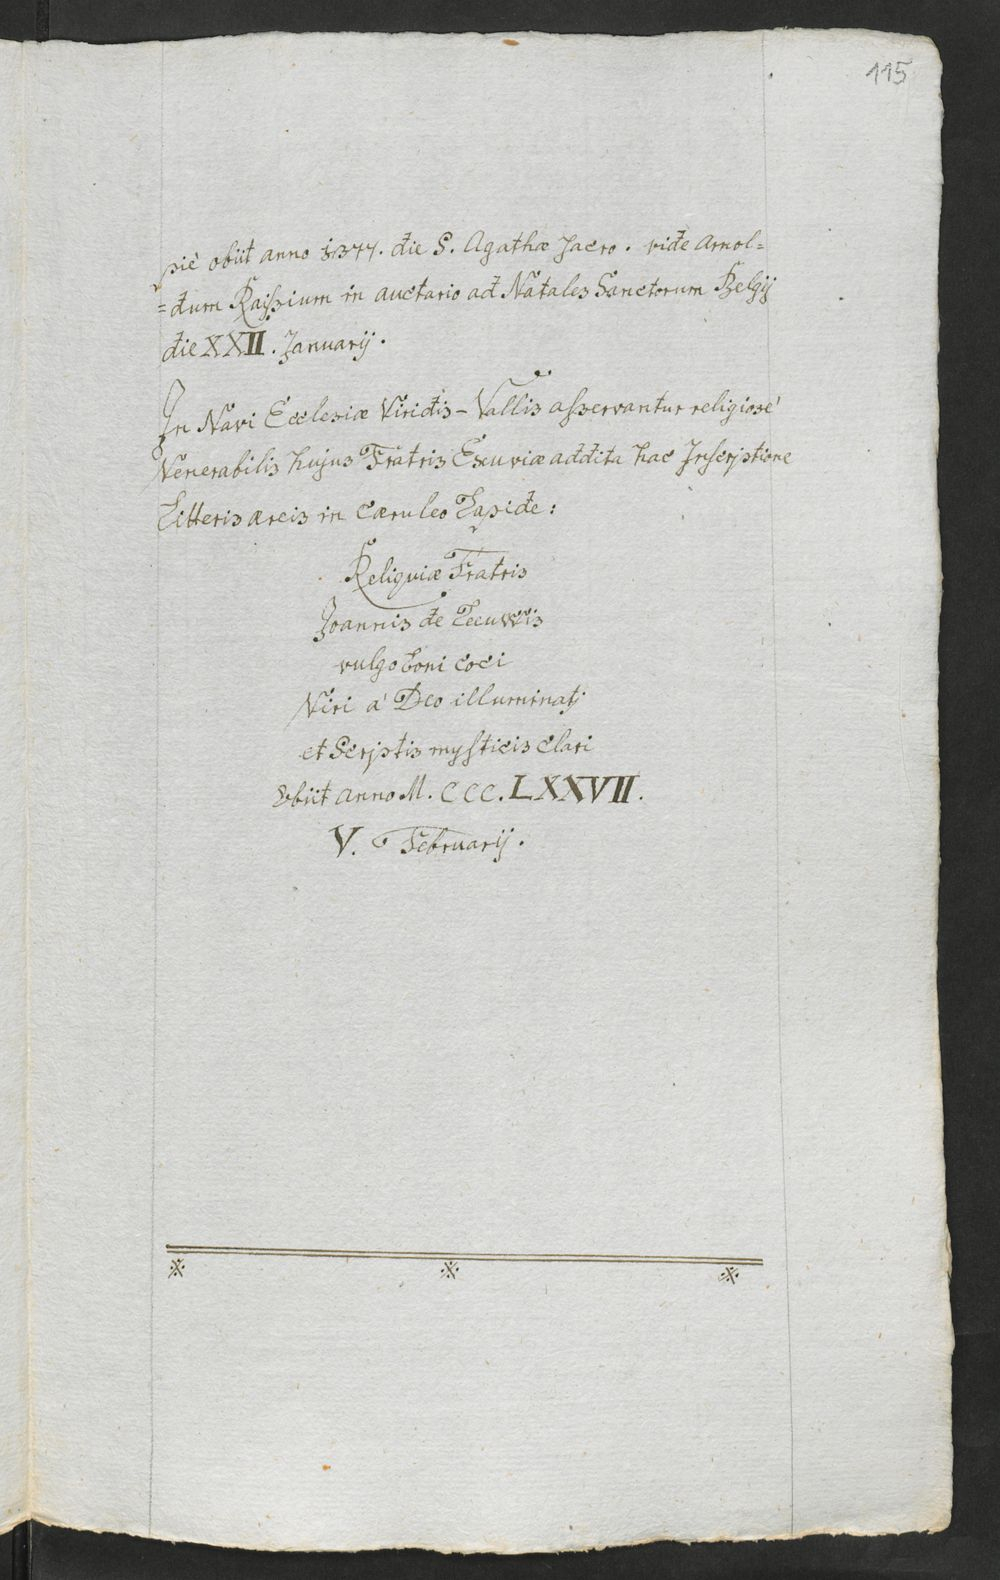 115
piè obiit anno 1377. die S. Agathæ sacro. vide Arnol=
=dum Raissium in auctario ad Natales Sanctorum Belgij
die XXII. Januarij.
In Navi Ecclesiæ Viridis-Vallis asservantur religiosè
Venerabilis hujus Fratris Exuviæ addita hac Inscriptione
Litteris æreis in Cæruleo Lapide:
Reliquiæ Fratris
Joannis de Leeuwis
vulgo boni coci
Viri à Deo illuminatj
et Scriptis mysticis clari
Obiit anno M. CCC. LXXVII.
V. Februarij.